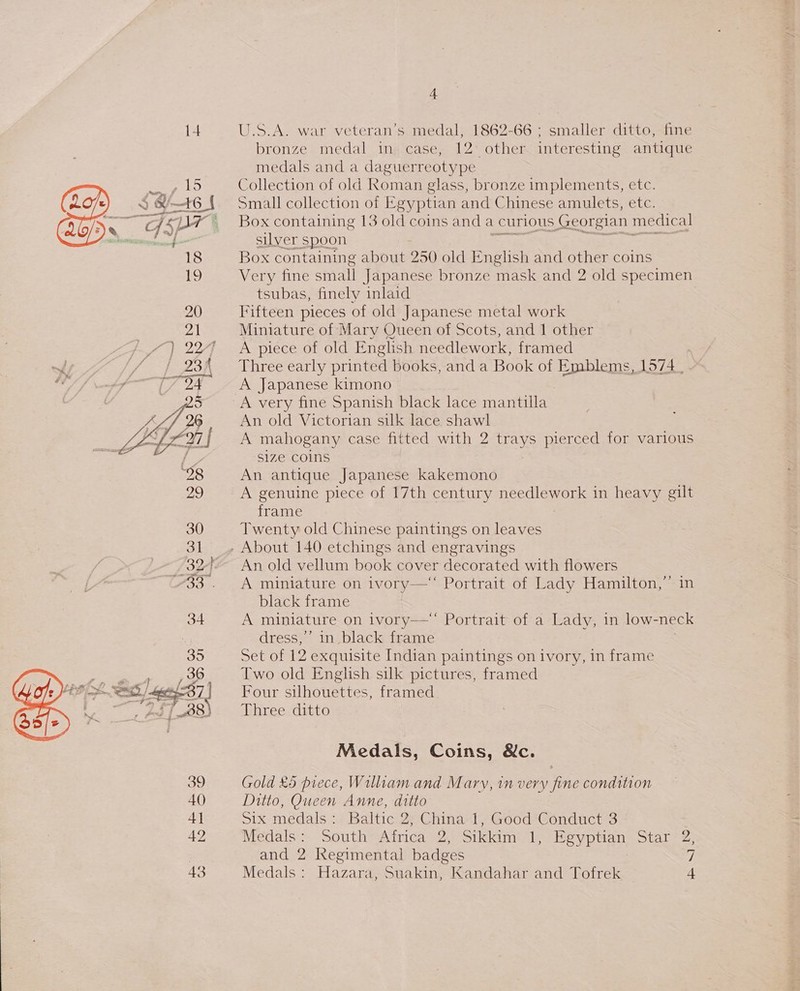 4
14 U.S.A. war veteran's medal, 1862-66 ; smaller ditto, fine
bronze medal in case, 12 other interesting antique
medals and a daguerreotype
15 Collection of old Roman glass, bronze implements, etc.
16 Small collection of Egyptian and Chinese amulets, etc.
17 Box containing 13 old coins and a curious Georgian medical
silver spoon
18 Box containing about 250 old English and other coins
19 Very fine small Japanese bronze mask and 2 old specimen
tsubas, finely inlaid
20 Fifteen pieces of old Japanese metal work
21 Miniature of Mary Queen of Scots, and 1 other
22 A piece of old English needlework, framed
23 Three early printed books, and a Book of Emblems, 1574
24 A Japanese kimono
25 A very fine Spanish black lace mantilla
26 An old Victorian silk lace shawl
27 A mahogany case fitted with 2 trays pierced for various
size coins
28 An antique Japanese kakemono
29 A genuine piece of 17th century needlework in heavy gilt
frame
30 Twenty old Chinese paintings on leaves
31 About 140 etchings and engravings
32 An old vellum book cover decorated with flowers
33 A miniature on ivory—“ Portrait of Lady Hamilton,” in
black frame
34 A miniature on ivory—“ Portrait of a Lady, in low-neck
dress,” in black frame
35 Set of 12 exquisite Indian paintings on ivory, in frame
36 Two old English silk pictures, framed
37 Four silhouettes, framed
38 Three ditto
20/-
26/-
40/-
35/-
Medals, Coins, &c.
39 Gold £5 piece, William and Mary, in very fine condition
40 Ditto, Queen Anne, ditto
41 Six medals : Baltic 2, China 1, Good Conduct 3
42 Medals : South Africa 2, Sikkim 1, Egyptian Star 2,
and 2 Regimental badges 7
43 Medals : Hazara, Suakin, Kandahar and Tofrek 4